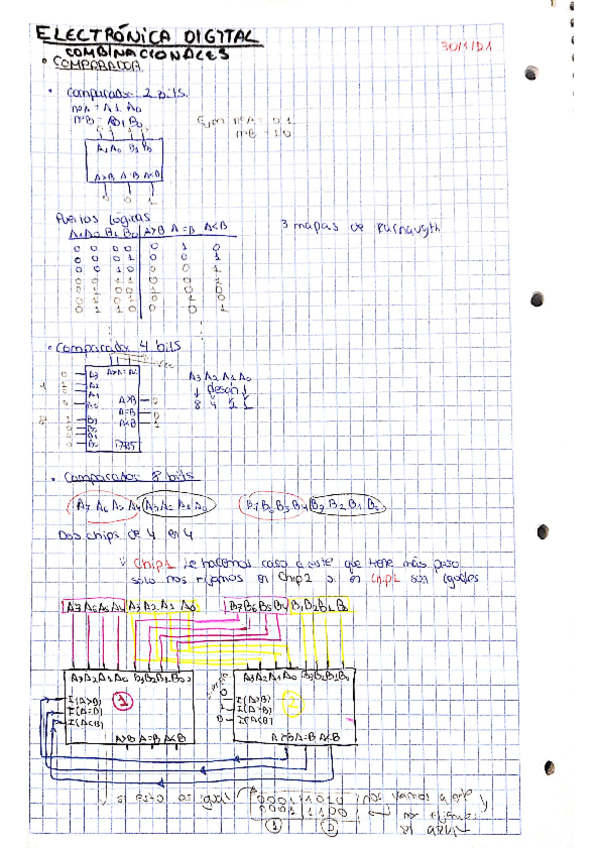 ELECTRÓNICA DIGITAL
30/11/21
COMBINACIONALES
• COMPARADOR
• Comparador 2 bits
nºA = A1 A0
nºB = B1 B0
Ejm nºA = 0 1
nºB = 1 0
A1 A0 B1 B0
A>B A=B A<B
0 0 1
Puertas lógicas
3 mapas de Karnaugh
A1 A0 B1 B0 A>B A=B A<B
0 0 0 0 0 1 0
0 0 0 1 0 0 1
0 0 1 0 0 0 1
0 0 1 1 0 0 1
• Comparador 4 bits
Vcc
A3 A>B A=B A<B
A2
A1
A0
A>B 0
A=B 0
A<B 1
B0 7485
A3 A2 A1 A0
8 4 2 1
• Comparador 8 bits
A7 A6 A5 A4 A3 A2 A1 A0 B7 B6 B5 B4 B3 B2 B1 B0
Dos chips de 4 en 4
Chip1 Le hacemos caso a este que tiene más peso
solo nos fijamos en Chip2 si en chip1 son iguales
A7 A6 A5 A4 A3 A2 A1 A0 B7 B6 B5 B4 B3 B2 B1 B0
A3 A2 A1 A0 B3 B2 B1 B0
A3 A2 A1 A0 B3 B2 B1 B0
I(A>B) 1
I(A=B)
I(A<B)
0 I(A>B) 2
1 I(A=B)
0 I(A<B)
A>B A=B A<B
A>B A=B A<B
si esto es igual 0001 1010 nos vamos a este y
0001 1100
1 2